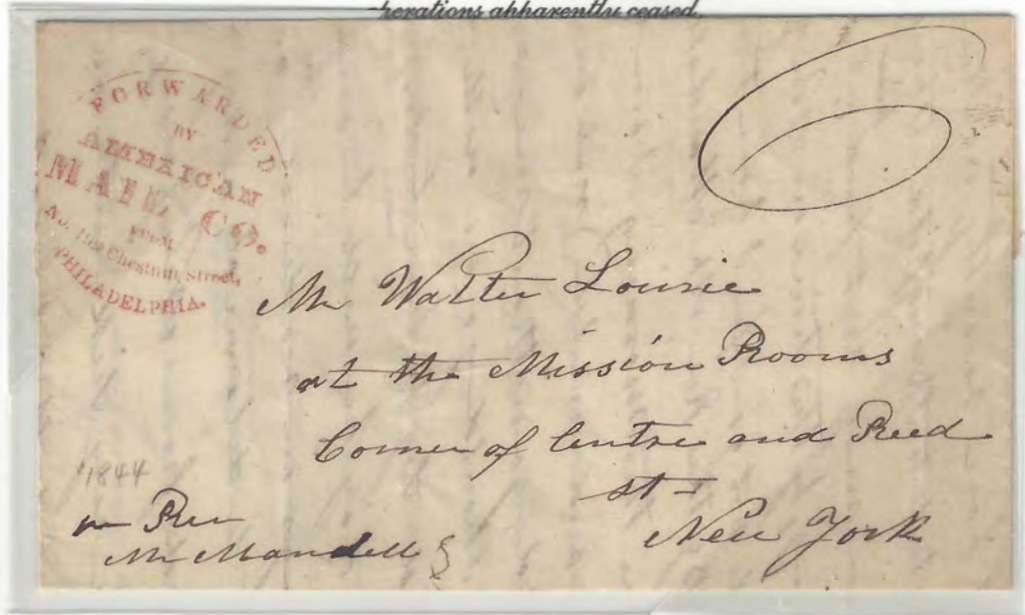 operations apparently ceased,
FORWARDED
BY
AMERICAN
MAIL CO.
FROM
No. Chestnut Street,
PHILADELPHIA.
6
Mr Walter Lowrie
at the Mission Rooms
Corner of Centre and Reed
st -
New York
1844
Rev
Mr Mandell